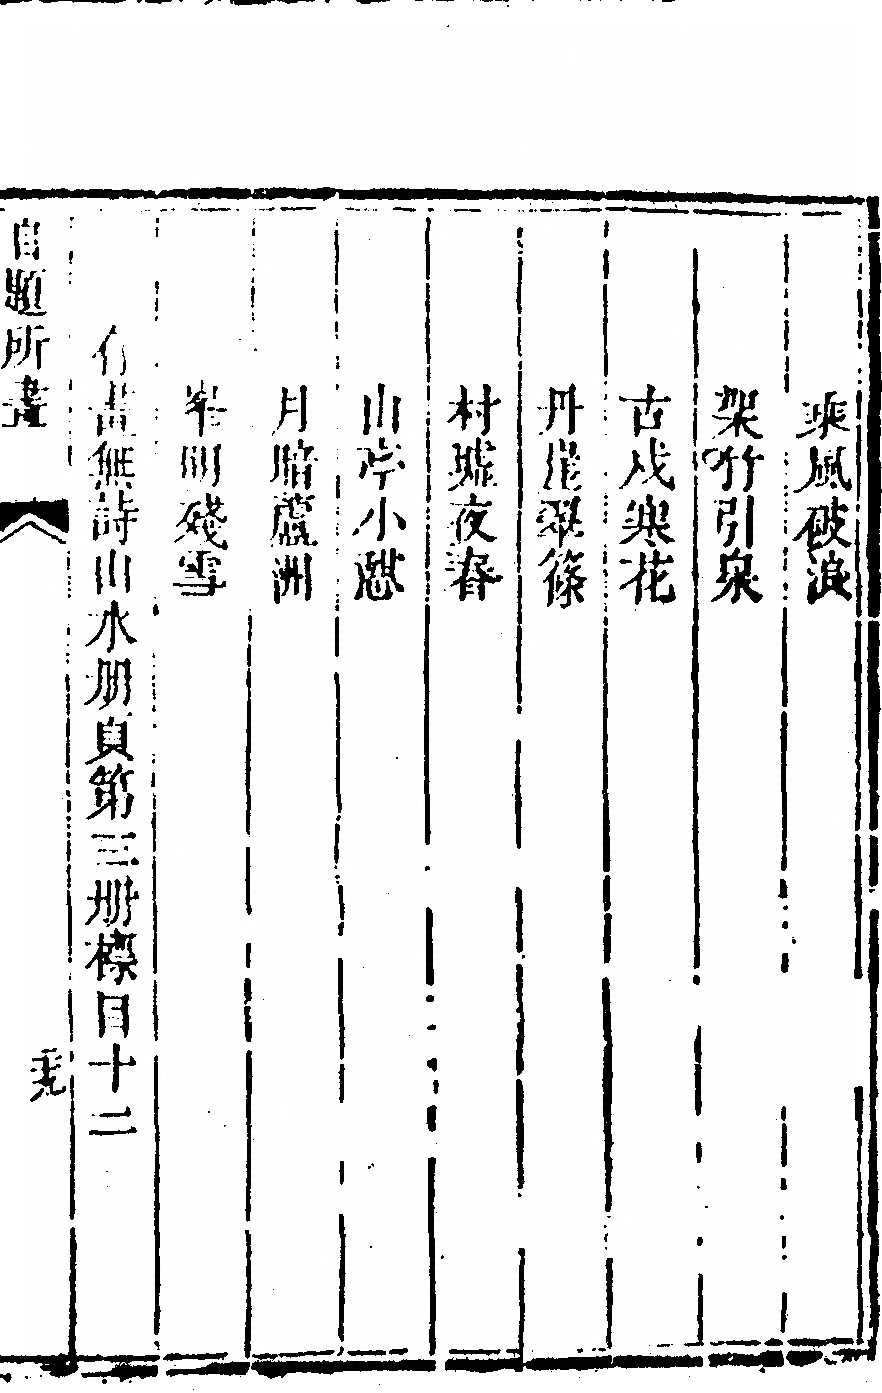 乘風破浪
架竹引泉
古戍寒花
丹崖翠篠
村墟夜舂
山亭小憩
月暗蘆洲
峯明殘雪
有畫無詩山水册頁第三册標目十二
自題所畫